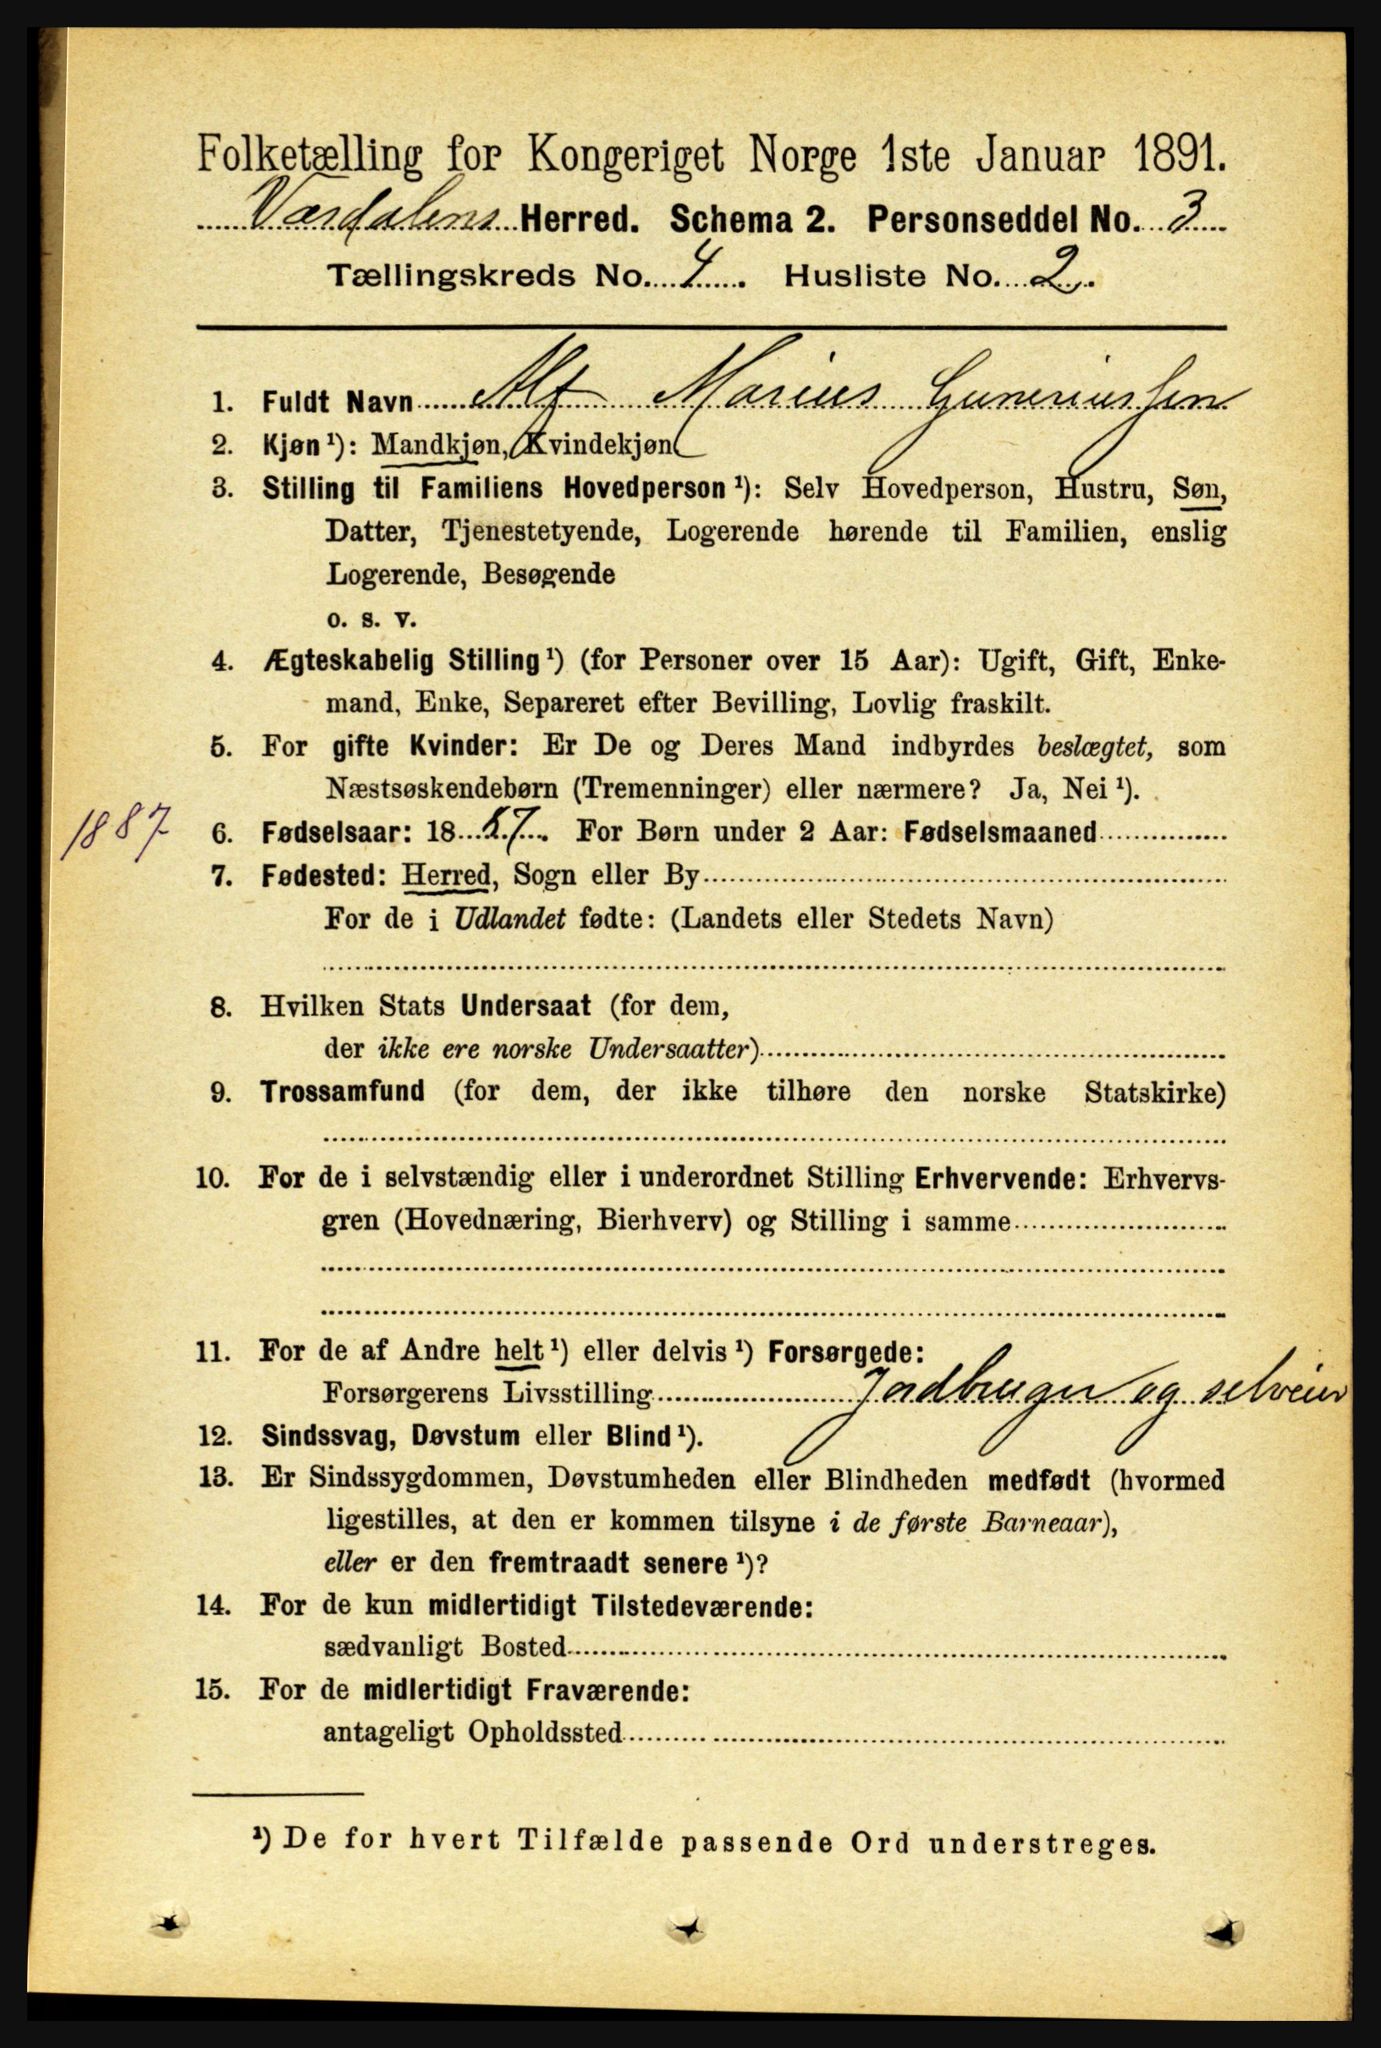 Folketælling for Kongeriget Norge 1ste Januar 1891.
Værdalens Herred. Schema 2. Personseddel No. 3
Tællingskreds No. 4. Husliste No. 2.
1. Fuldt Navn Alf Marius Guneriussen
2. Kjøn ¹): Mandkjøn, Kvindekjøn
3. Stilling til Familiens Hovedperson ¹): Selv Hovedperson, Hustru, Søn,
Datter, Tjenestetyende, Logerende hørende til Familien, enslig
Logerende, Besøgende
o. s. v.
4. Ægteskabelig Stilling ¹) (for Personer over 15 Aar): Ugift, Gift, Enke-
mand, Enke, Separeret efter Bevilling, Lovlig fraskilt.
5. For gifte Kvinder: Er De og Deres Mand indbyrdes beslægtet, som
Næstsøskendebørn (Tremenninger) eller nærmere? Ja, Nei ¹).
1887
6. Fødselsaar: 1887. For Børn under 2 Aar: Fødselsmaaned
7. Fødested: Herred, Sogn eller By
For de i Udlandet fødte: (Landets eller Stedets Navn)
8. Hvilken Stats Undersaat (for dem,
der ikke ere norske Undersaatter)
9. Trossamfund (for dem, der ikke tilhøre den norske Statskirke)
10. For de i selvstændig eller i underordnet Stilling Erhvervende: Erhvervs-
gren (Hovednæring, Bierhverv) og Stilling i samme
11. For de af Andre helt ¹) eller delvis ¹) Forsørgede:
Forsørgerens Livsstilling Jordbruger og selveier
12. Sindssvag, Døvstum eller Blind ¹).
13. Er Sindssygdommen, Døvstumheden eller Blindheden medfødt (hvormed
ligestilles, at den er kommen tilsyne i de første Barneaar),
eller er den fremtraadt senere ¹)?
14. For de kun midlertidigt Tilstedeværende:
sædvanligt Bosted
15. For de midlertidigt Fraværende:
antageligt Opholdssted
¹) De for hvert Tilfælde passende Ord understreges.